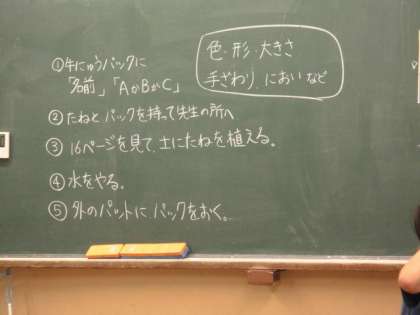 ①牛にゅうパックに
「名前」「AかBかC」
②たねとパックを持って先生の所へ
③16ページを見て、土にたねを植える。
④水をやる。
⑤外のバットに、パックをおく。
色・形・大きさ
手ざわり、においなど